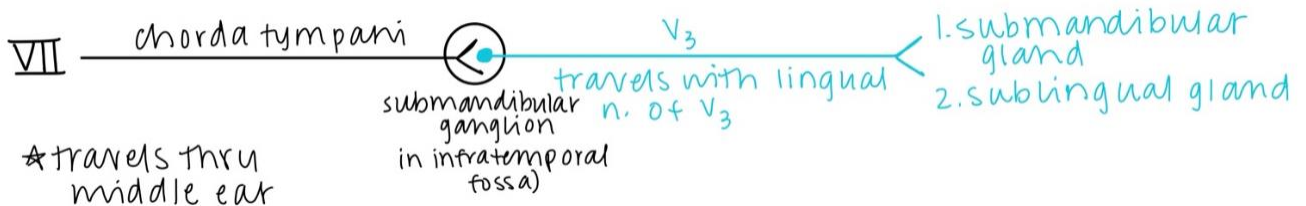 VII
chorda tympani
submandibular
ganglion
in infratemporal
fossa)
V3
travels with lingual
n. of V3
1. submandibular
gland
2. sublingual gland
☆travels thru
middle ear